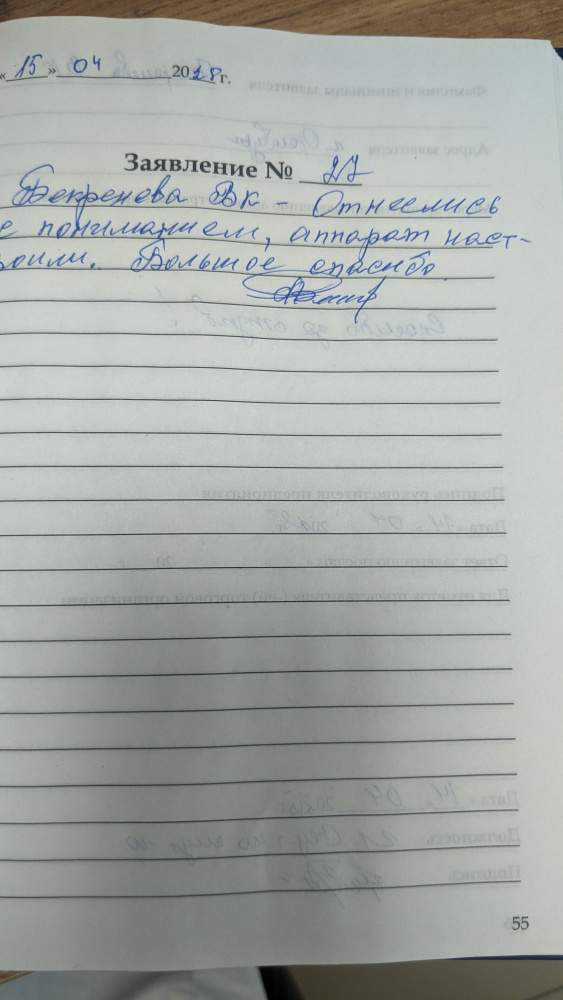 «15» 04 20 г.
Заявление № 27
Бекренева ВК - Отнеслись
с пониманием, аппарат наст-
роили. Большое спасибо
55